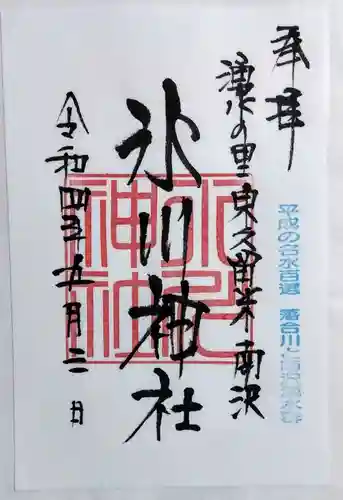 奉拝
平成の名水百選 落合川と南沢湧水群
湧水の里 東久留米 南沢
氷川神社
氷川神社
令和四年五月三日